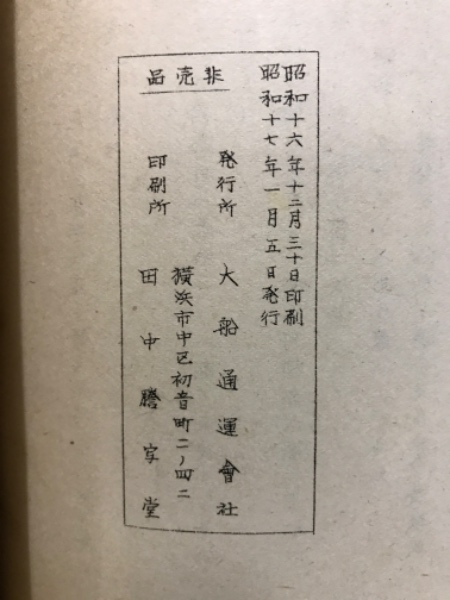 昭和十六年十二月三十日印刷
昭和十七年一月五日発行
非売品
発行所 大船通運會社
横浜市中区初音町二ノ四二
印刷所 田中謄写堂